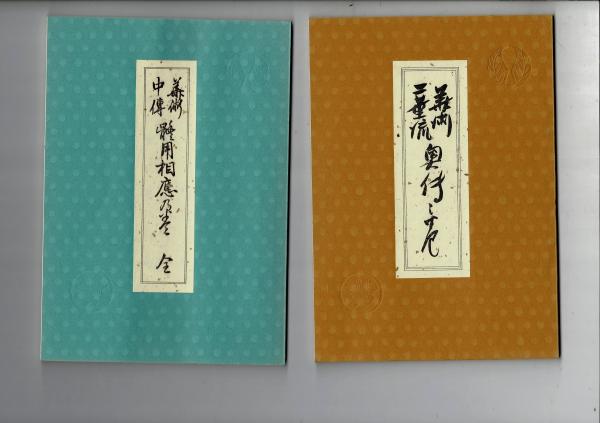 華術
中傳
體用相應乃巻 全
華術
三華流
奥傳之巻